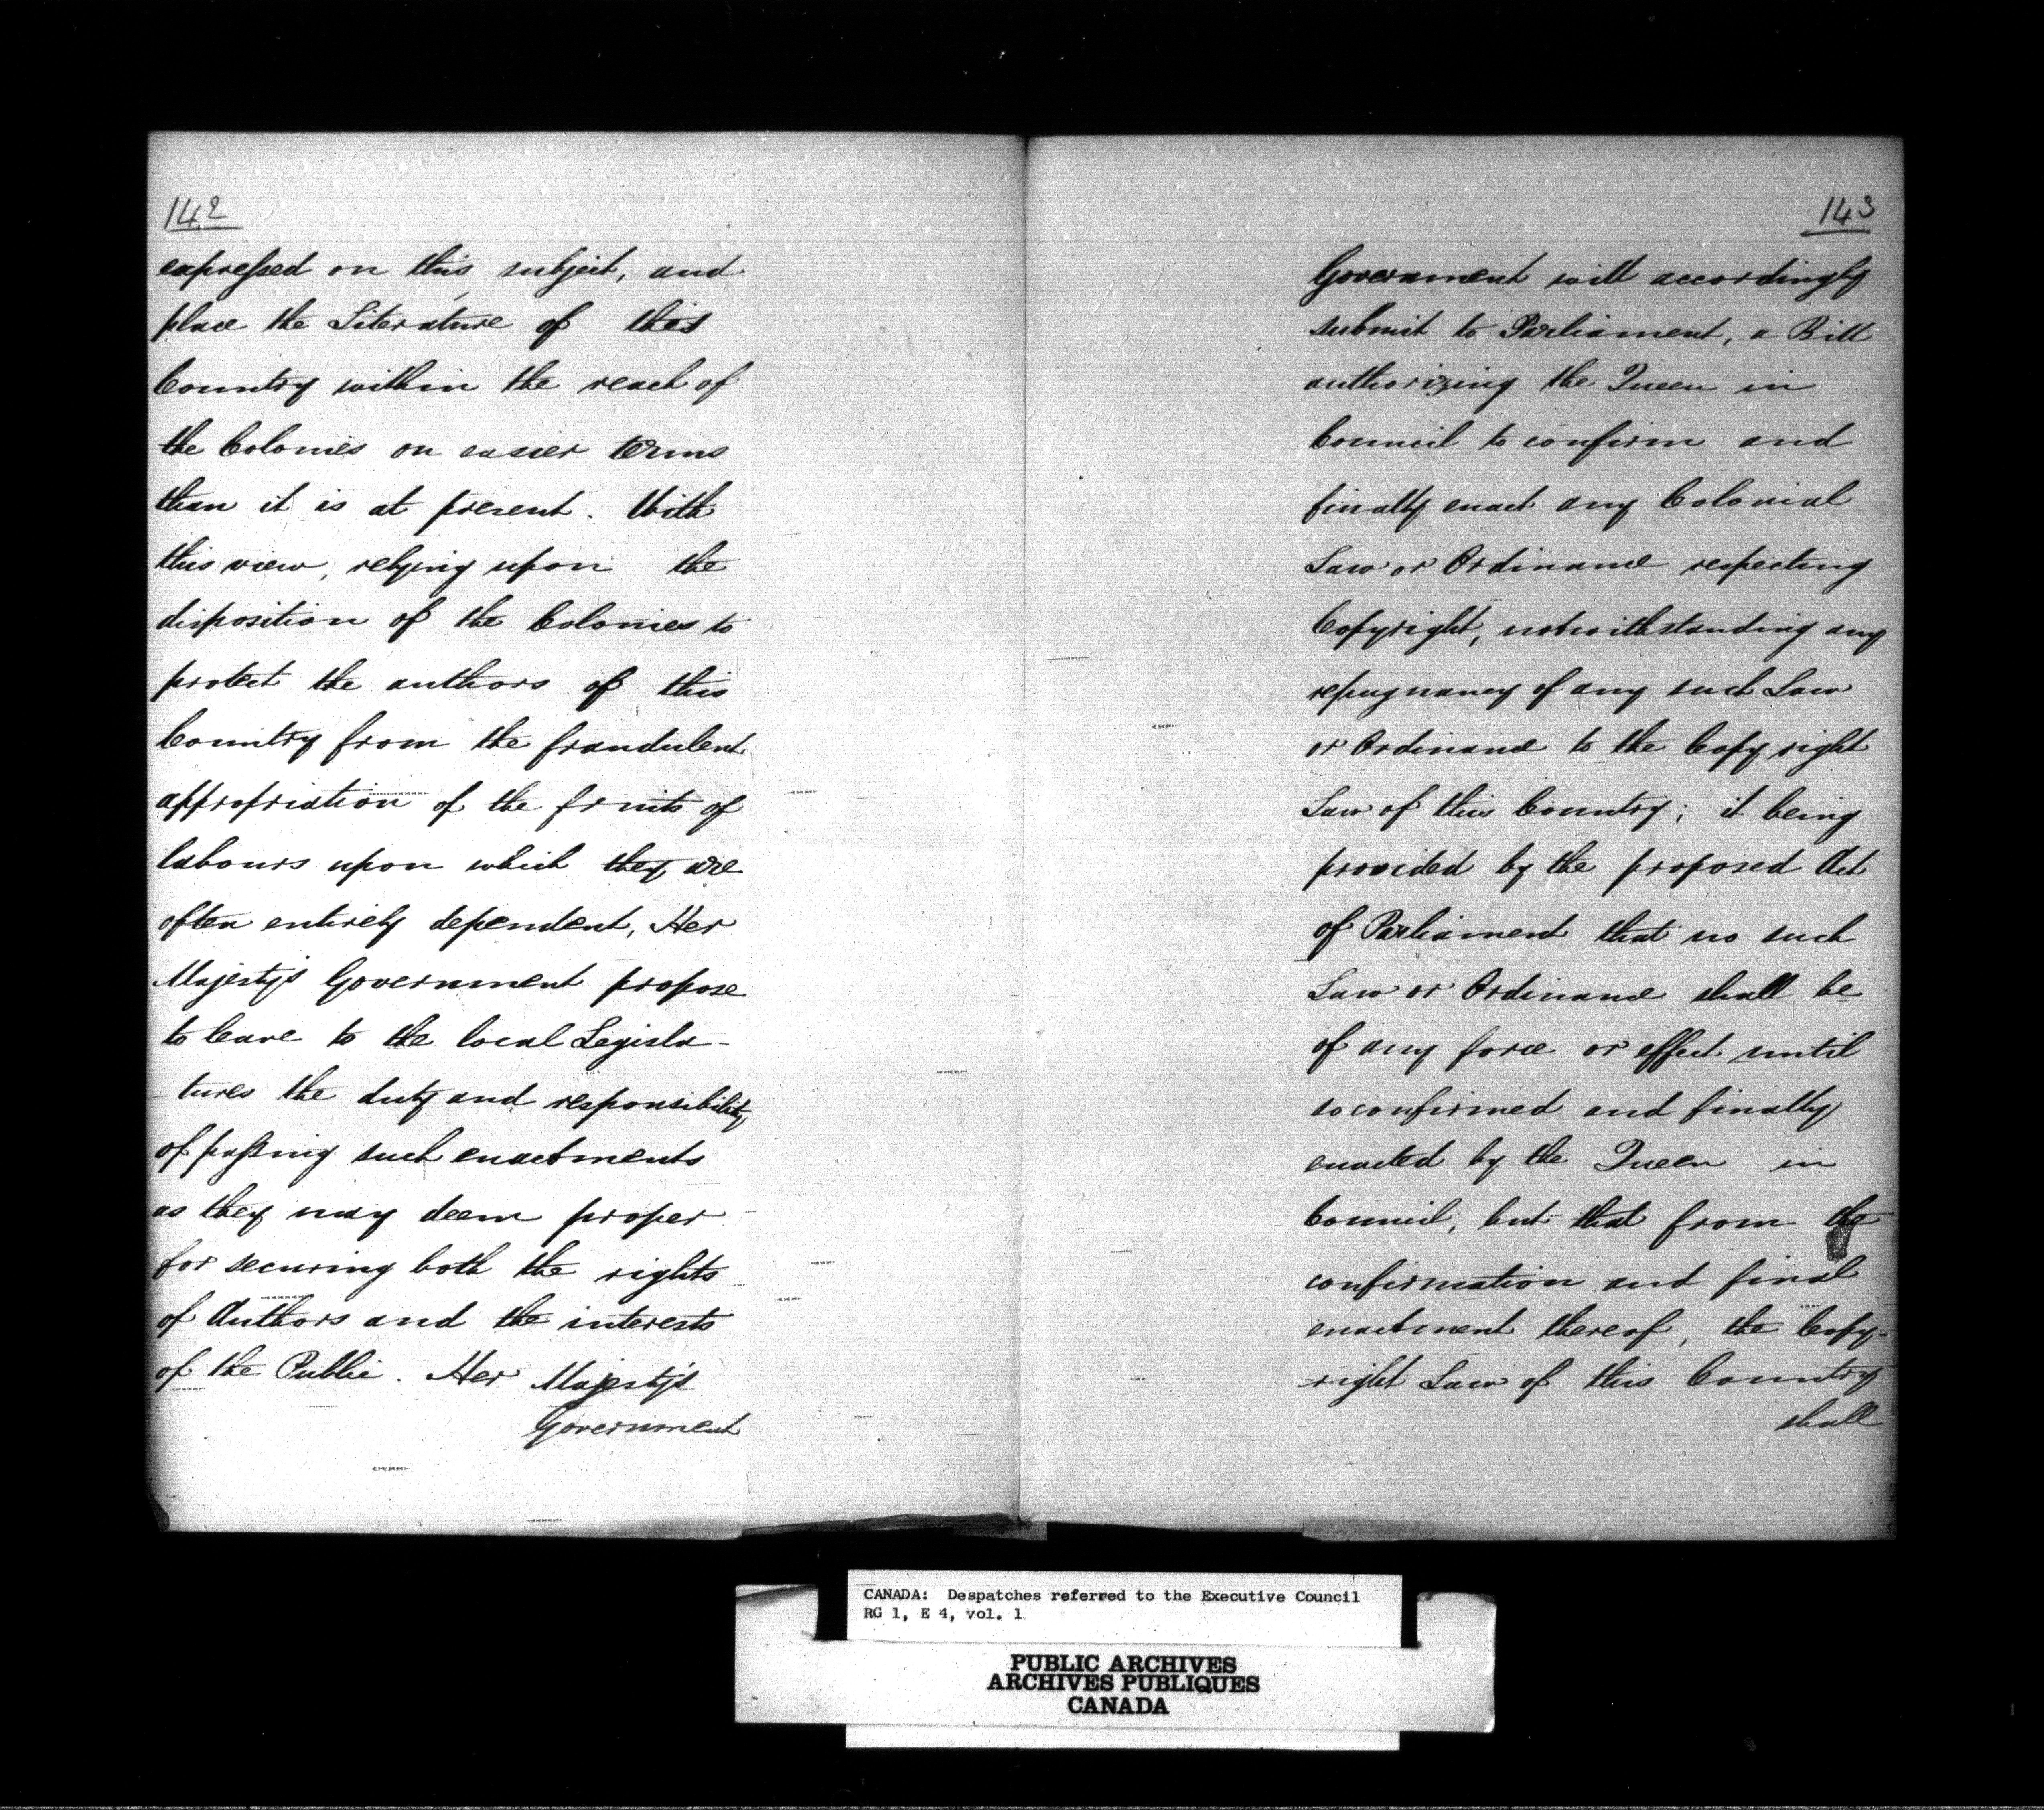 142
expressed on this subject, and
place the Literature of this
Country within the reach of
the Colonies on easier terms
than it is at present. With
this view, relying upon the
disposition of the Colonies to
protect the authors of this
Country from the fraudulent
appropriation of the fruits of
labours upon which they are
often entirely dependent, Her
Majesty's Government propose
to leave to the local Legisla-
-tures the duty and responsibility
of passing such enactments
as they may deem proper
for securing both the rights
of Authors and the interests
of the Public. Her Majesty's
Government
143
Government will accordingly
submit to Parliament, a Bill
authorizing the Queen in
Council to confirm and
finally enact any Colonial
Law or Ordinance respecting
Copyright, notwithstanding any
repugnancy of any such Law
or Ordinance to the Copy right
Law of this Country; it being
provided by the proposed Act
of Parliament that no such
Law or Ordinance shall be
of any force or effect until
so confirmed and finally
enacted by the Queen in
Council, but that from the
confirmation and final
enactment thereof, the Copy-
-right Law of this Country
shall
CANADA: Despatches referred to the Executive Council
RG 1, E 4, vol. 1
PUBLIC ARCHIVES
ARCHIVES PUBLIQUES
CANADA